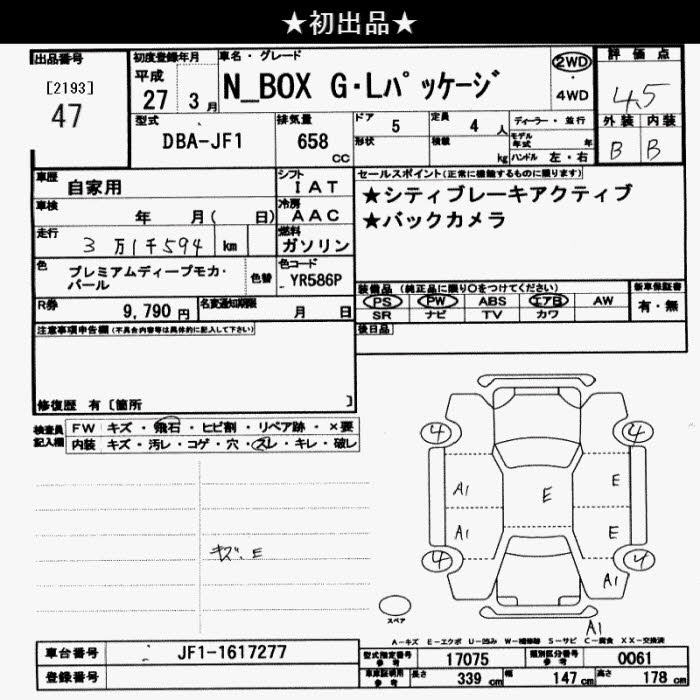 ★初出品★
出品番号
[2193]
47
初度登録年月
平成
27 3 月
車名・グレード
N_BOX G・Lパッケージ
2WD
・
4WD
評価点
4.5
外装 内装
B B
型式
DBA-JF1
排気量
658
CC
ドア
5
形状
定員
4 人
積載
kg
ディーラー・並行
モデル
年式 年
ハンドル 左・右
車歴
自家用
シフト
IAT
車検
年 月( 日)
冷房
AAC
走行
3 万 1千594 km
燃料
ガソリン
色
プレミアムディープモカ・
パール
色替
色コード
YR586P
R券
9,790 円
名変通知期限
月 日
セールスポイント(正常に機能するものに限ります)
★シティブレーキアクティブ
★バックカメラ
装備品 (純正品に限り○をつけてください)
新車保証書
PS PW ABS エアB AW
SR ナビ TV カワ
有・無
後日品
注意事項申告欄(不具合内容等は具体的に記入して下さい)
修復歴 有〔箇所 〕
検査員
記入欄
FW キズ・飛石・ヒビ割・リペア跡・×要
内装 キズ・汚レ・コゲ・穴・スレ・キレ・破レ
キズ・E
4 4
A1 E E
A1 E
4 4
A1
スペア
A1
A-キズ E-エクボ U-凹み W-補修跡 S-サビ C-腐食 XX-交換済
車台番号
JF1-1617277
登録番号
型式指定番号
参考
17075
類別区分番号
参考
0061
車庫証明用
参考
長さ 339 cm 幅 147 cm 高さ 178 cm